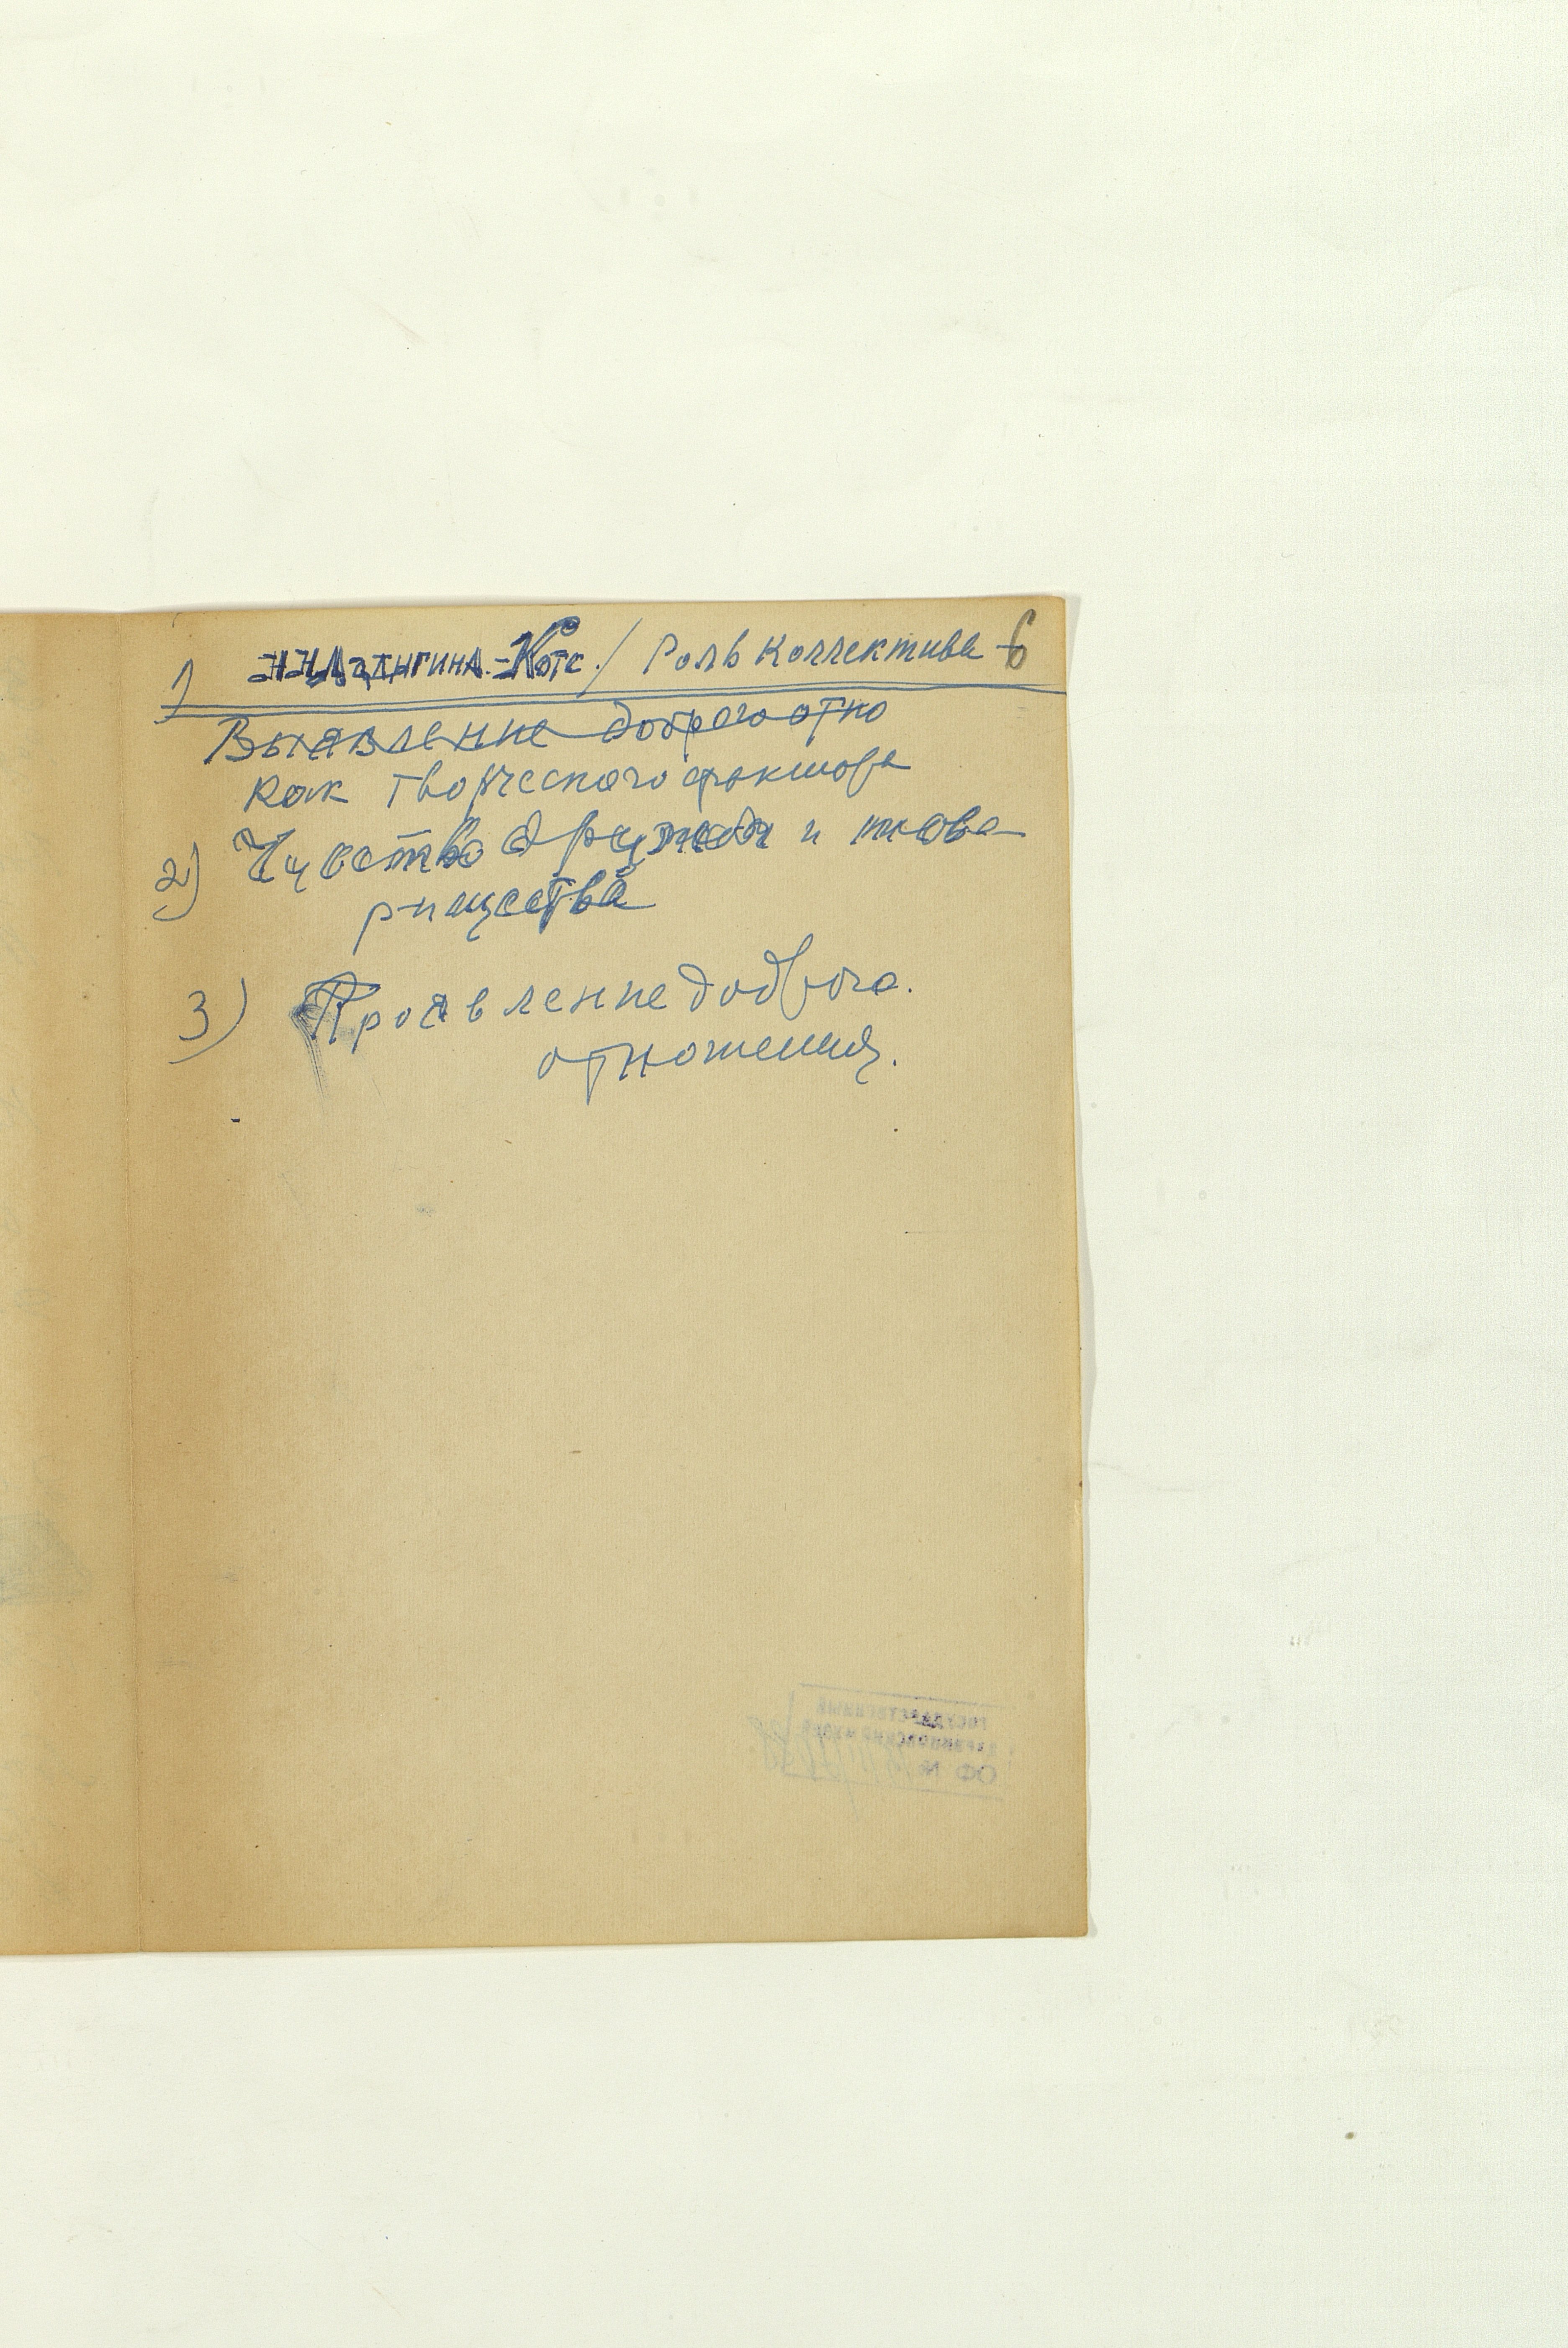 1) Н. Н. Ладыгина.-Котс./ Роль коллектива 6
Выявление доброго отно
как творческого фактора
2) Чувство дружбы и това
рищества
3) Проявление доброго.
отношения.
ГОСУДАРСТВЕННЫЙ
ДАРВИНОВСКИЙ МУЗЕЙ
ОФ №